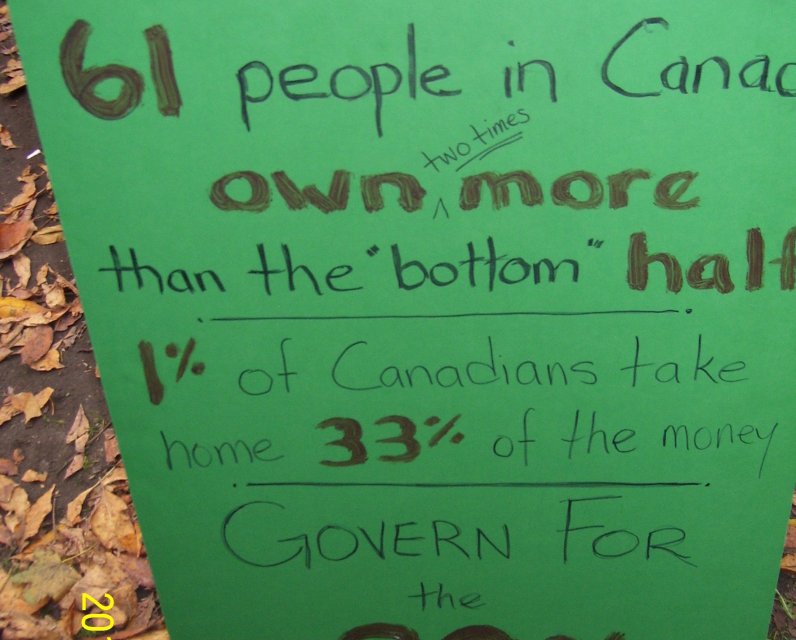 61 people in Canad
own two times more
than the "bottom" half
1% of Canadians take
home 33% of the money
GOVERN FOR
the
20